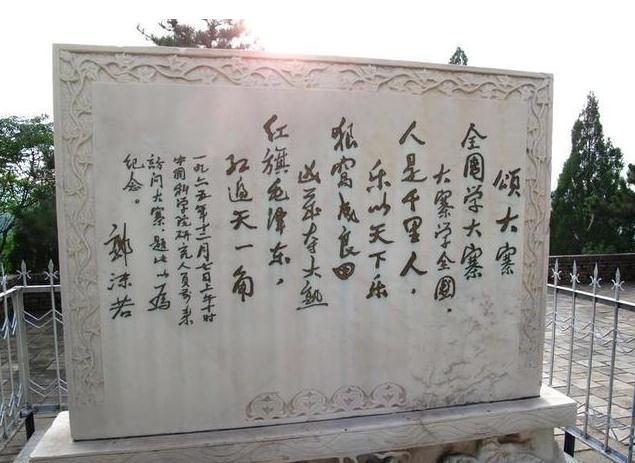 颂大寨
全國学大寨
大寨学全國，
人是千里人，
乐以天下乐
狼窝成良田
凶岁夺大熟
红旗毛泽东，
红遍天一角
一九六五年十二月七日上午十时
中国科学院研究人员来
访问大寨题此以为
纪念。
郭沫若